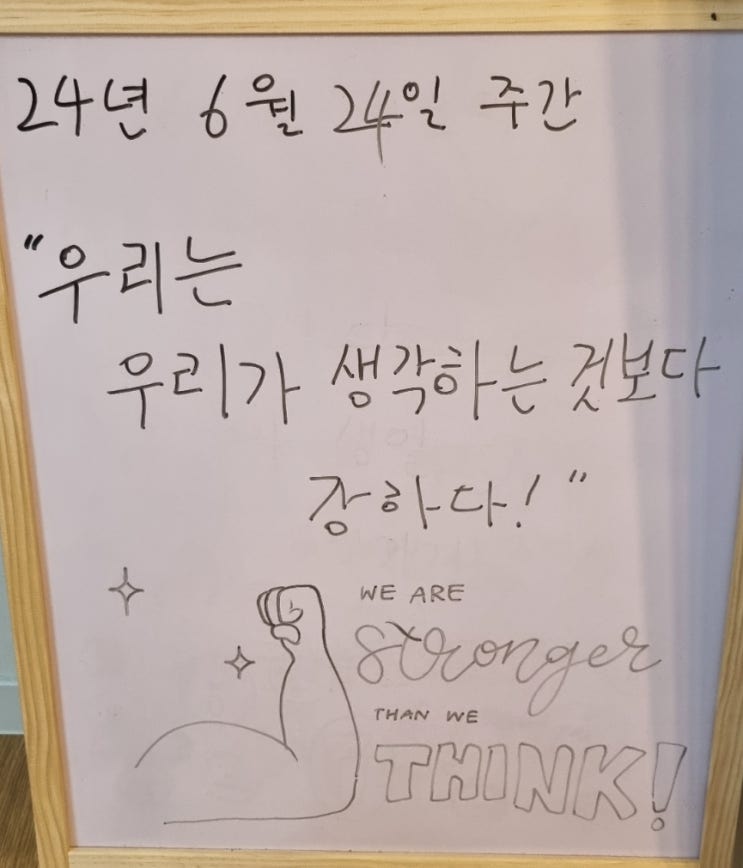 24년 6월 24일 주간
"우리는
우리가 생각하는 것보다
장하다!"
WE ARE
stronger
THAN WE
THINK!